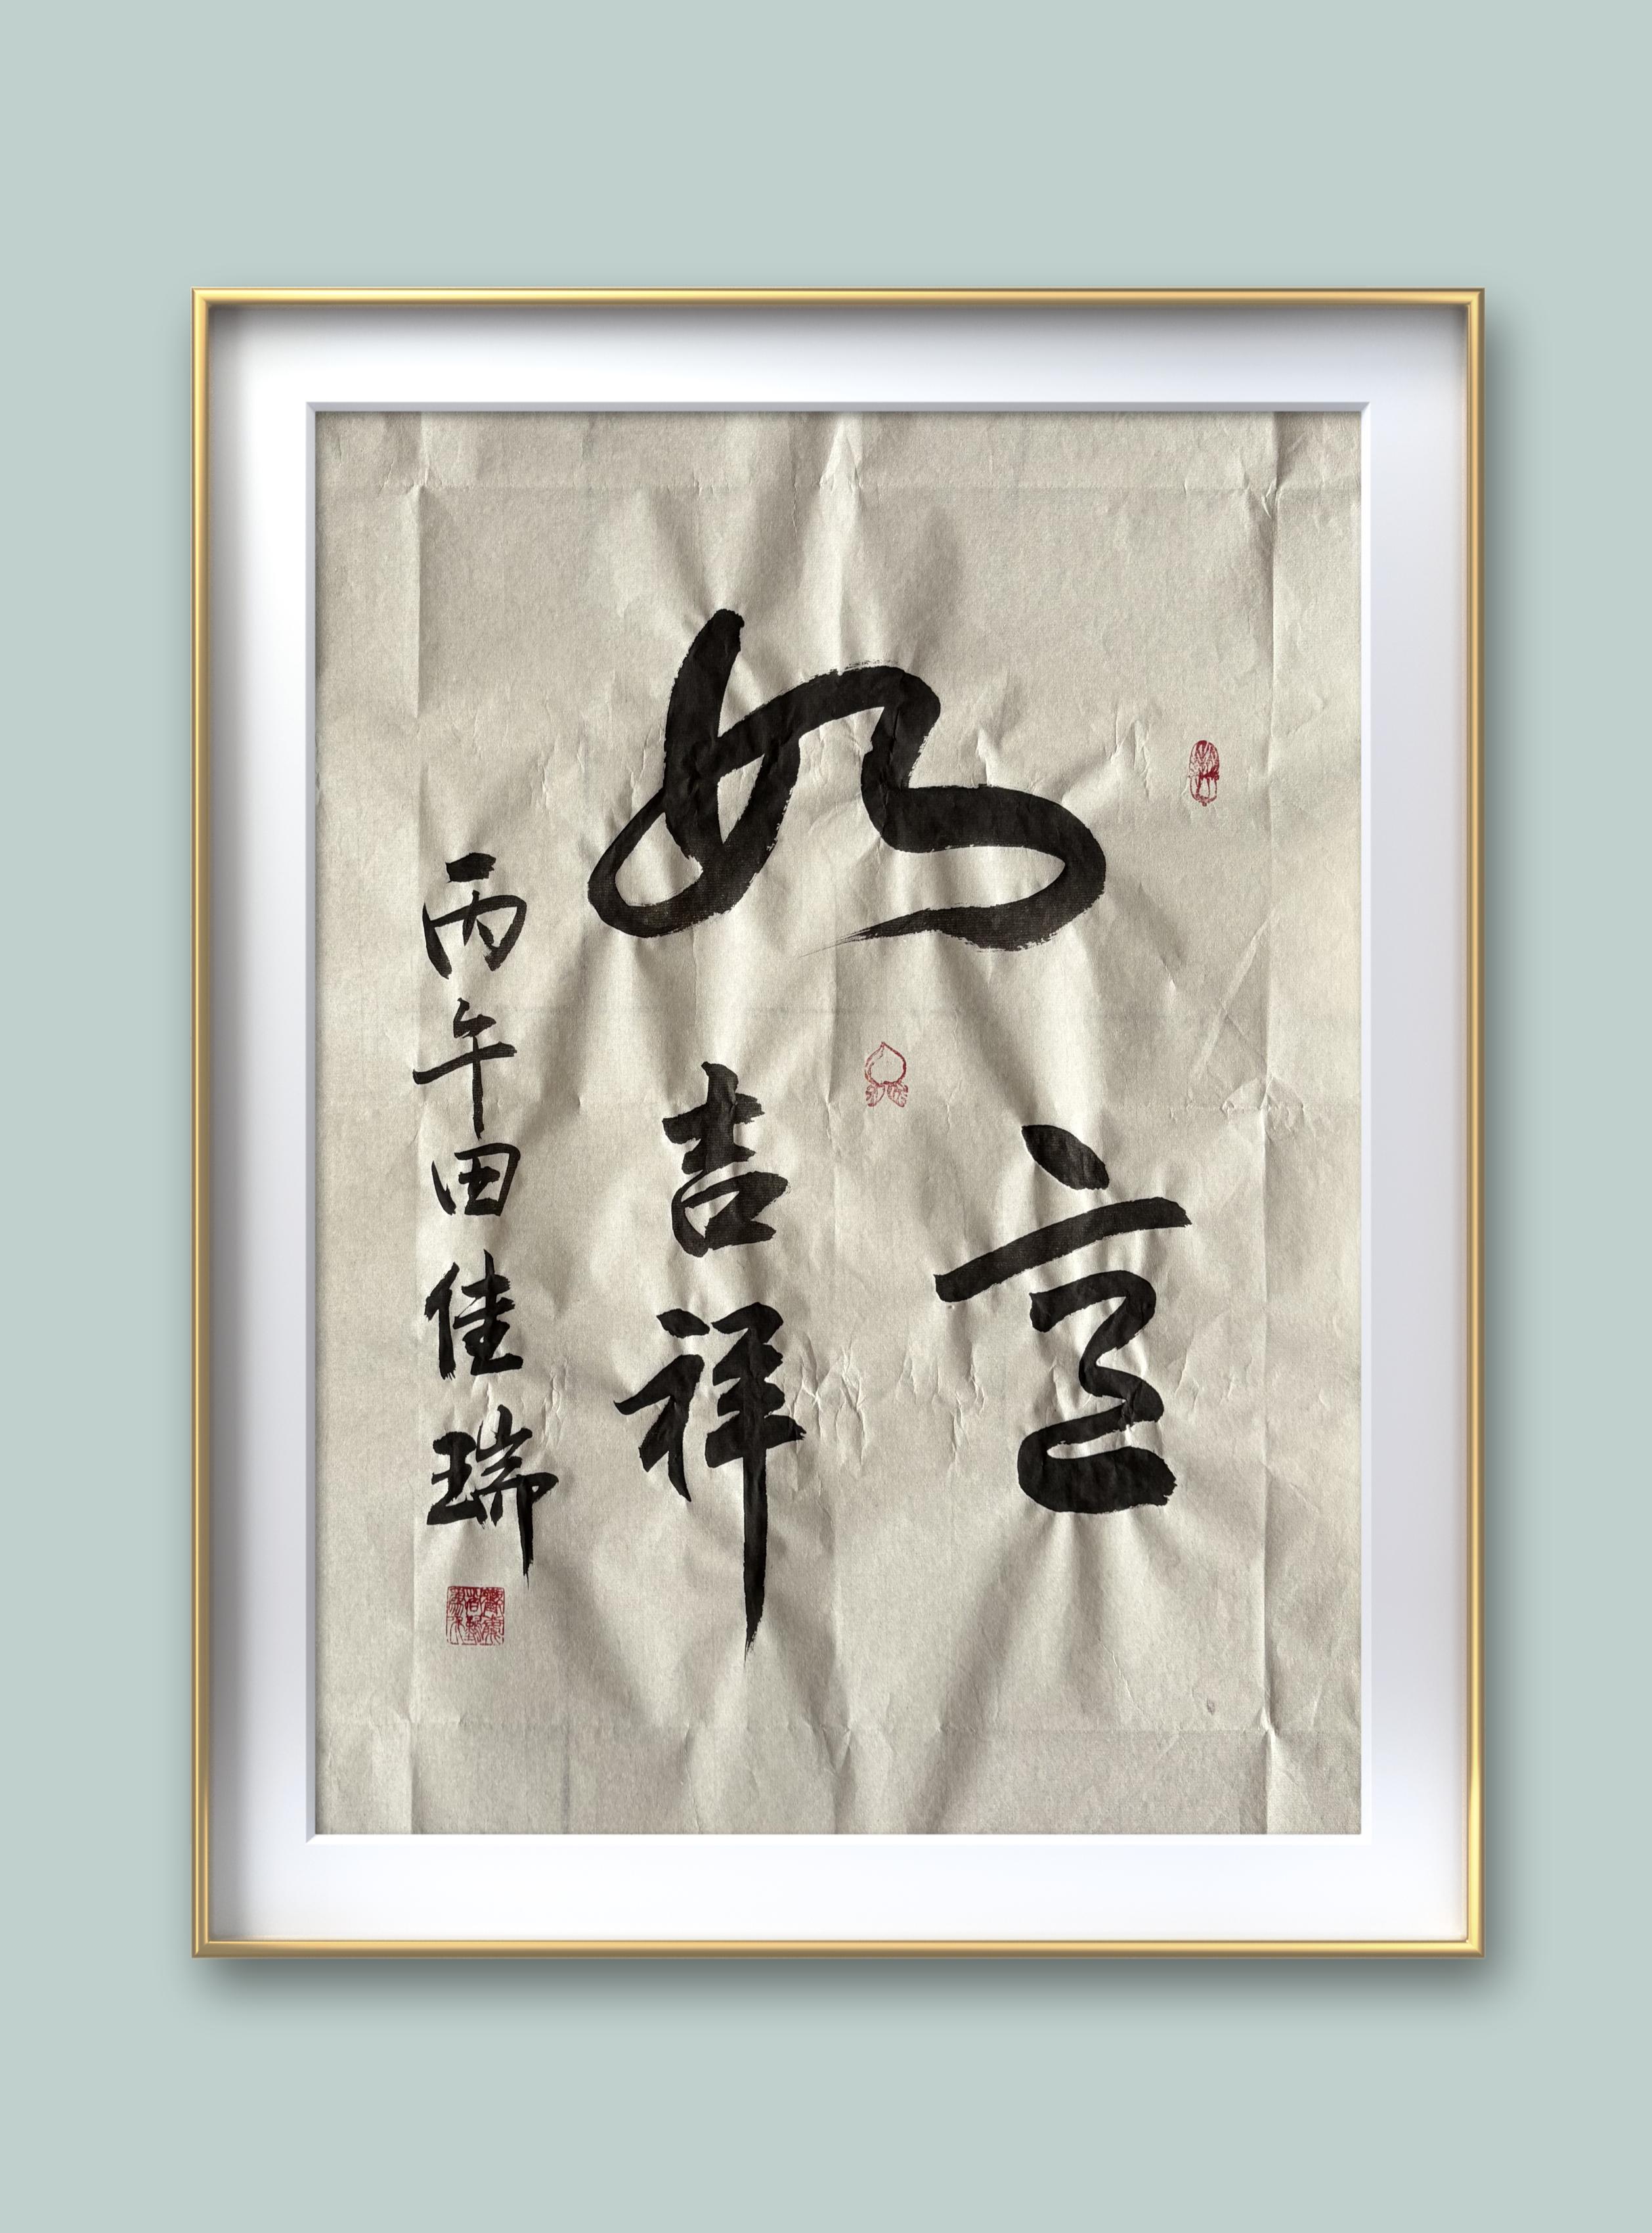 如意
吉祥
丙午田佳瑞